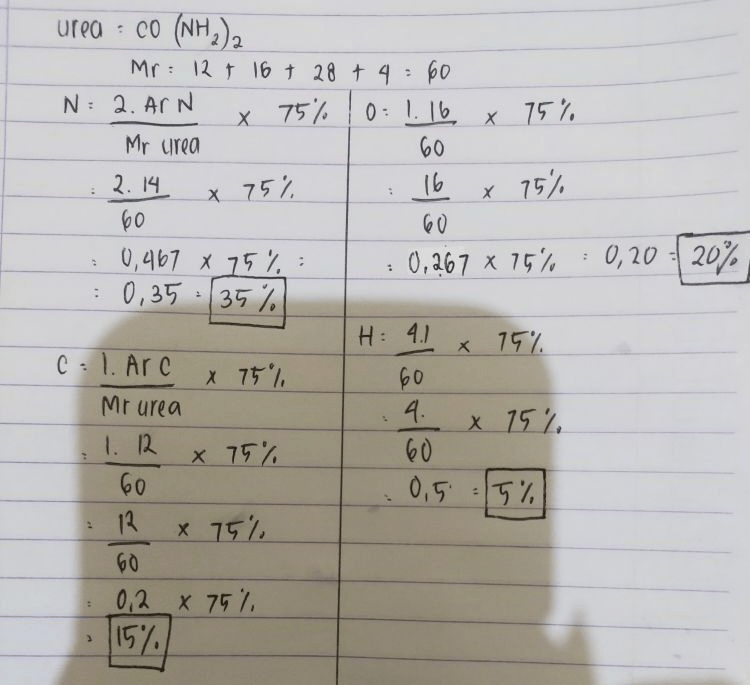 urea = CO (NH2)2
Mr = 12 + 16 + 28 + 4 = 60
N = 2. Ar N / Mr urea x 75%
= 2. 14 / 60 x 75%
= 0,467 x 75% =
= 0,35 = 35%
C = 1. Ar C / Mr urea x 75%
= 1. 12 / 60 x 75%
= 12 / 60 x 75%
= 0,2 x 75%
= 15%
O = 1. 16 / 60 x 75%
= 16 / 60 x 75%
= 0,267 x 75% = 0,20 = 20%
H = 4.1 / 60 x 75%
= 4. / 60 x 75%
= 0,5 = 5%